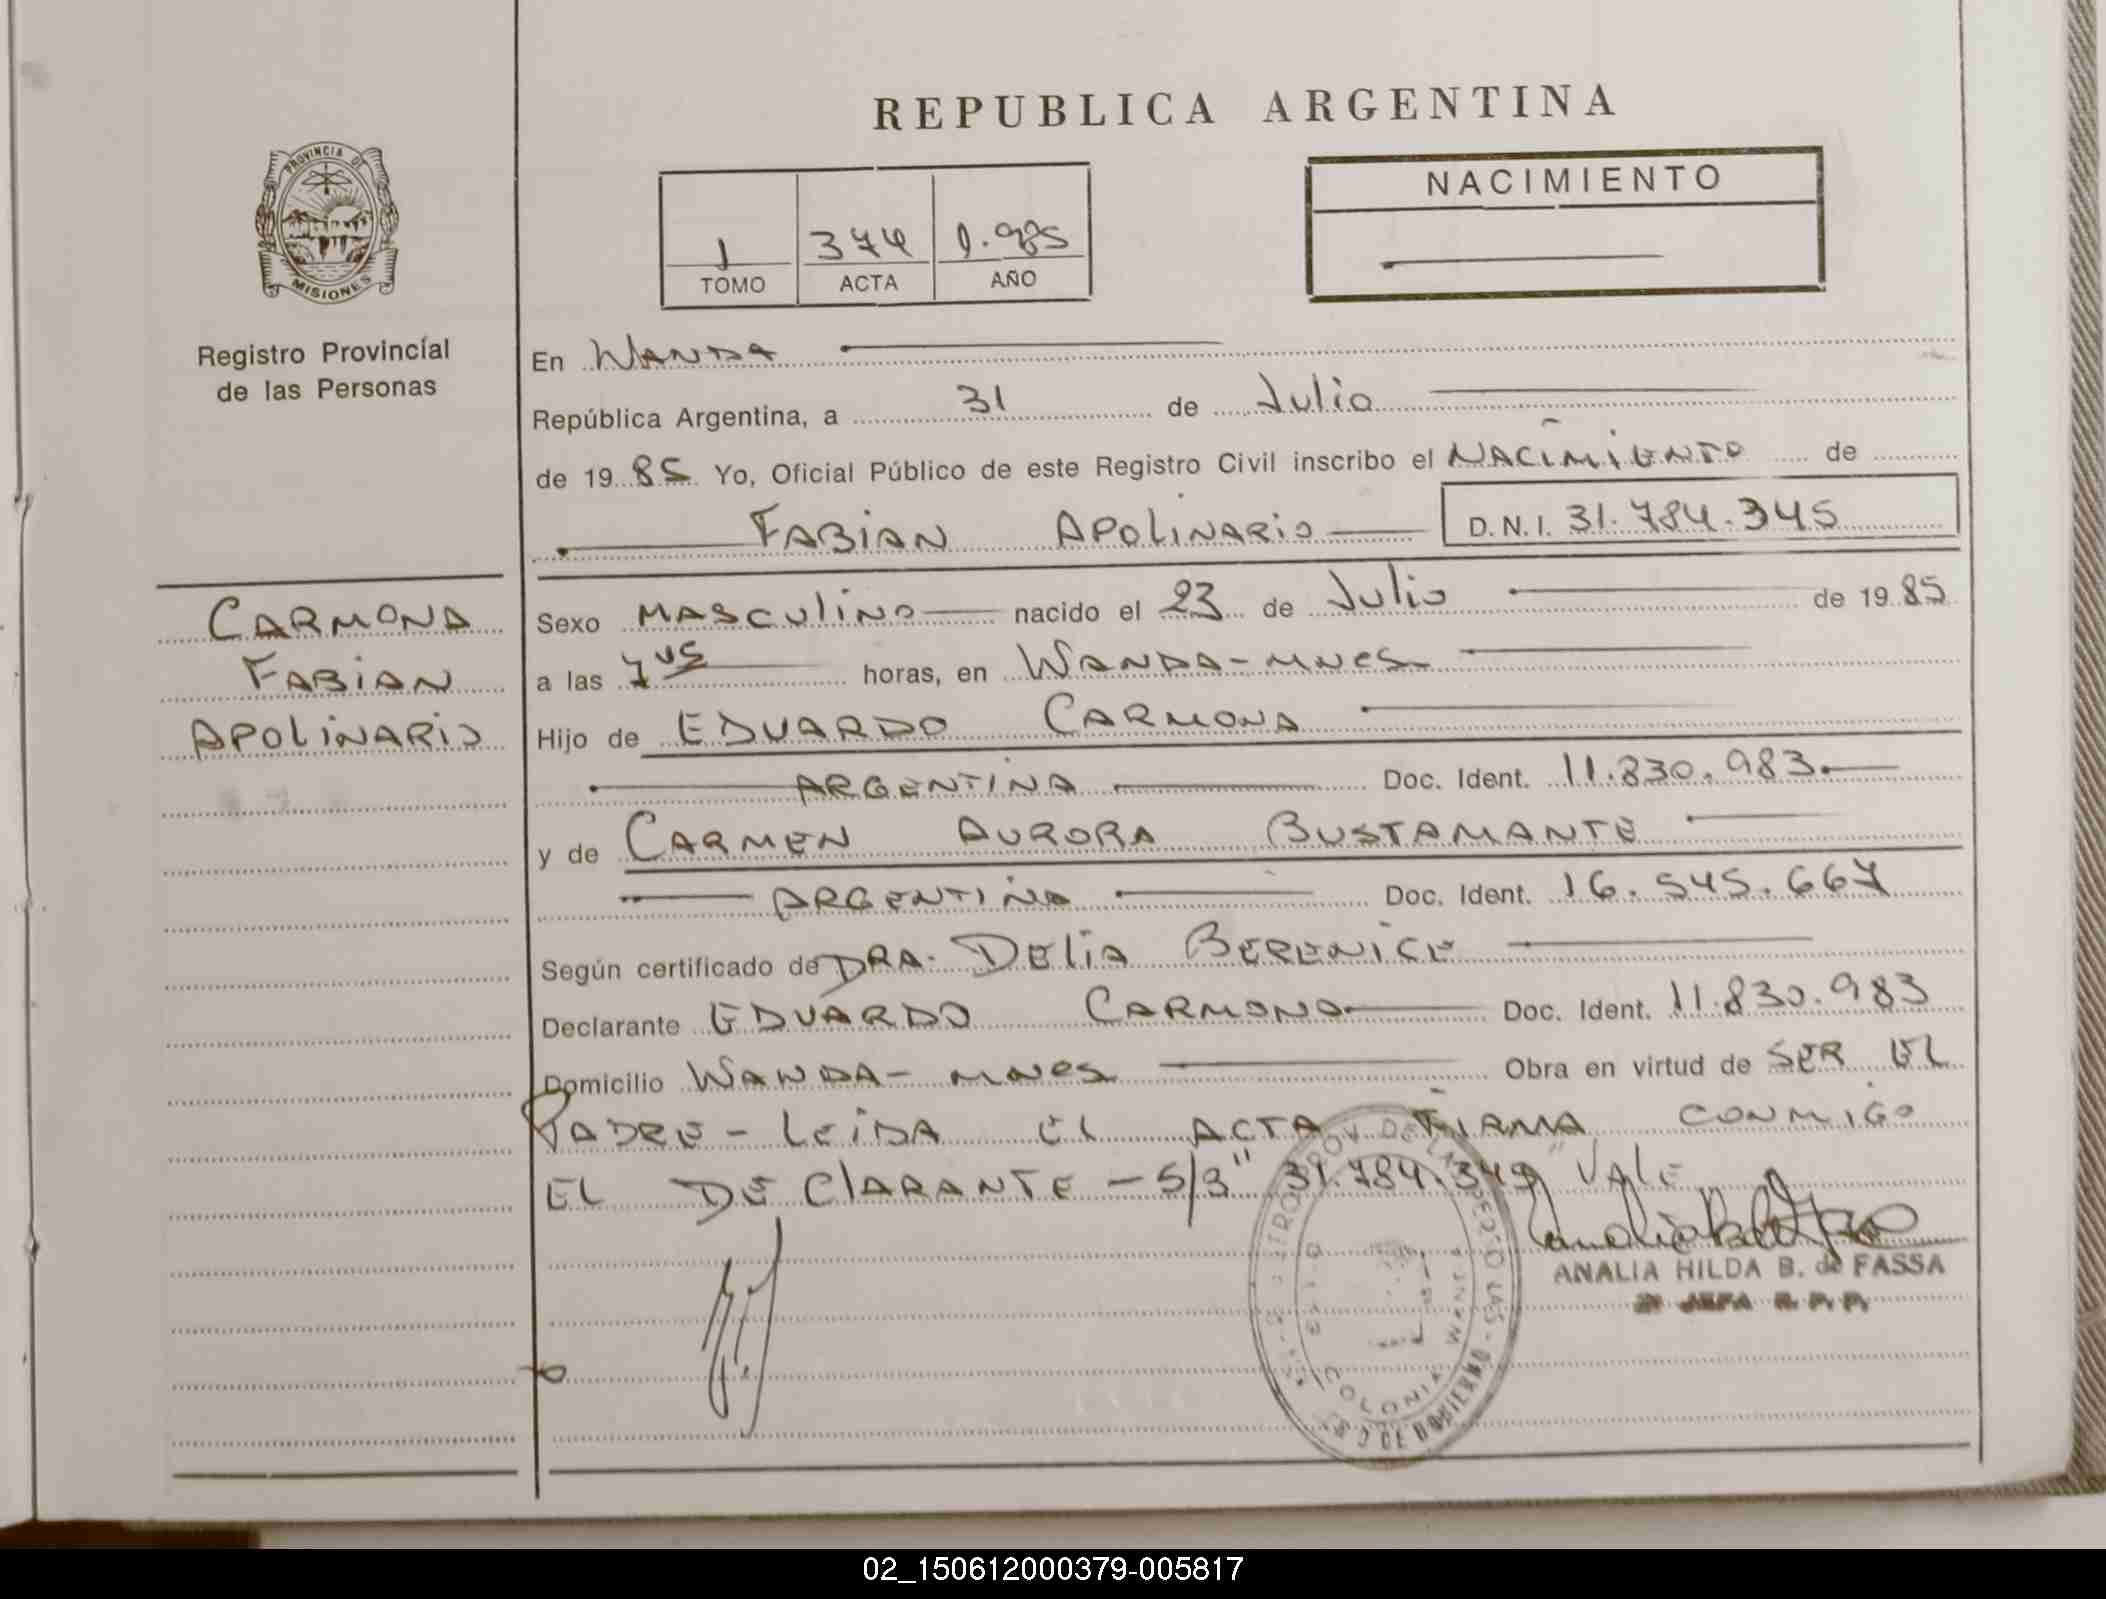 REPUBLICA ARGENTINA
PROVINCIA DE
MISIONES
Registro Provincial
de las Personas
1 374 1.985
TOMO ACTA AÑO
NACIMIENTO
En WANDA
República Argentina, a 31 de Julio
de 1985 Yo, Oficial Público de este Registro Civil inscribo el NACIMIENTO de
FABIAN APOLINARIO D.N.I. 31.784.345
CARMONA
FABIAN
APOLINARIO
Sexo MASCULINO nacido el 23 de Julio de 1985
a las 7 05 horas, en WANDA-MNES
Hijo de EDUARDO CARMONA
ARGENTINA Doc. Ident. 11.830.983.
y de CARMEN AURORA BUSTAMANTE
ARGENTINA Doc. Ident. 16.545.667
Según certificado de DRA. DELIA BERENICE
Declarante EDUARDO CARMONA Doc. Ident. 11.830.983
Domicilio WANDA - MNES Obra en virtud de SER EL
PADRE - LEIDA EL ACTA FIRMA CONMIGO
EL DECLARANTE - S/B " 31.784.345 " VALE
ANALIA HILDA B. de FASSA
JEFA R. P. P.
COLONIA WANDA
02_150612000379-005817